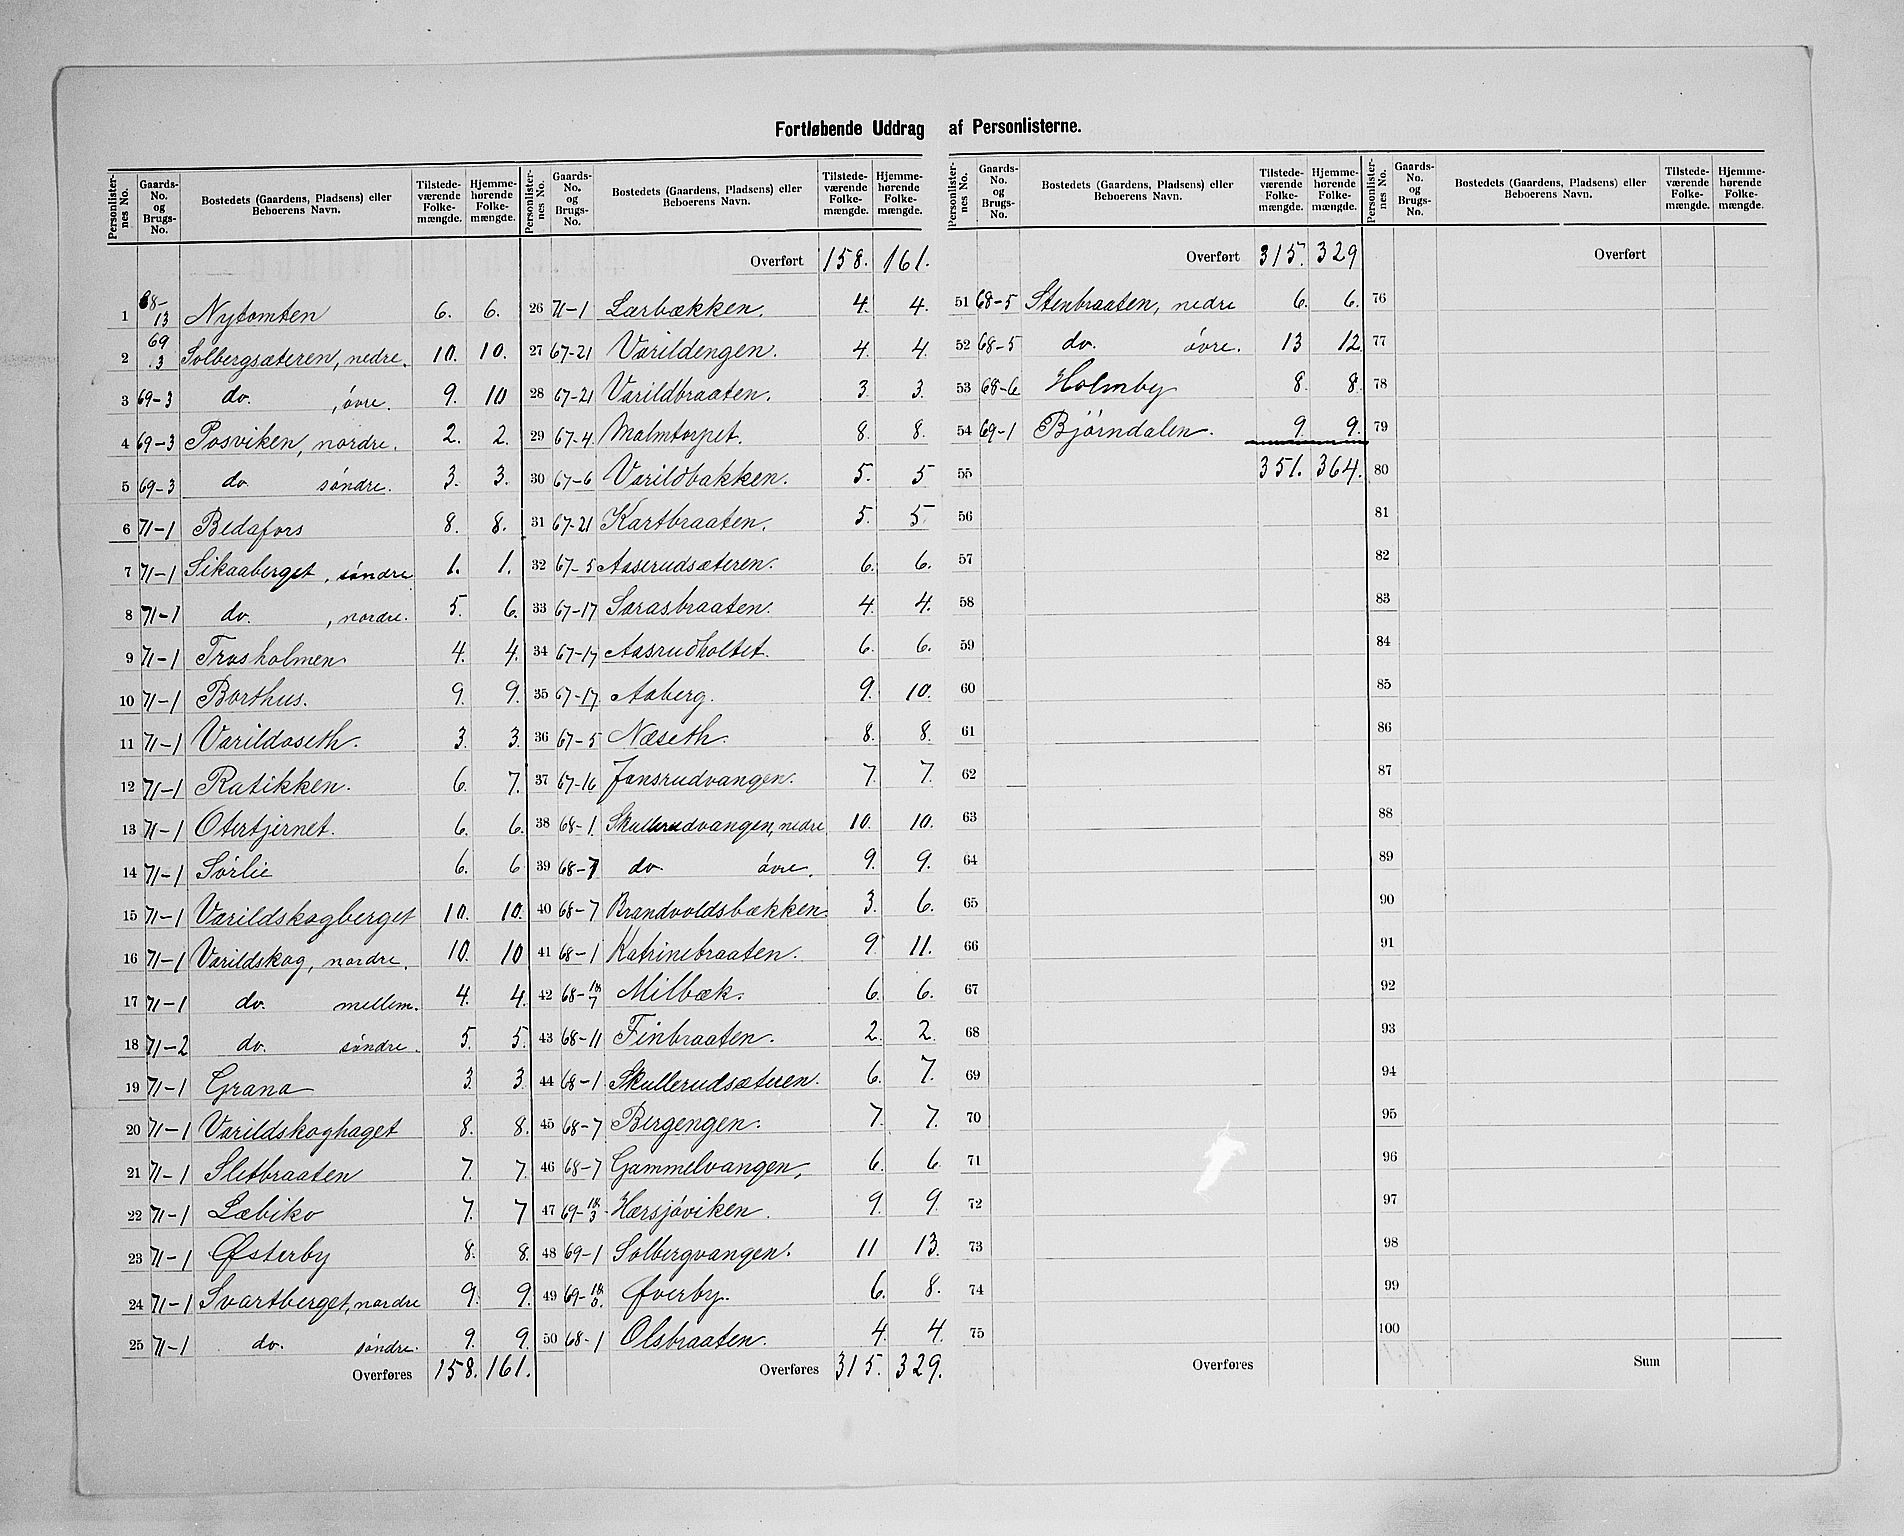 Fortløbende Uddrag af Personlisterne.
Personlister-nes No. | Gaards-No. og Brugs-No. | Bostedets (Gaardens, Pladsens) eller Beboerens Navn. | Tilstede-værende Folke-mængde. | Hjemme-hørende Folke-mængde.
1 68-13 Nytomten 6. 6.
2 69 3 Solbergsæteren, nedre. 10. 10.
3 69-3 do. , övre. 9. 10
4 69-3 Posviken, nordre. 2. 2.
5 69-3 do söndre. 3. 3.
6 71-1 Bedafors 8. 8.
7 71-1 Sikaaberget, söndre 1. 1.
8 71-1 do. , nordre. 5. 6.
9 71-1 Trosholmen 4. 4.
10 71-1 Borthus. 9. 9.
11 71-1 Varildoseth. 3. 3.
12 71-1 Ratikken. 6. 7.
13 71-1 Otertjernet. 6. 6.
14 71-1 Sörlie 6. 6
15 71-1 Varildskogberget 10. 10.
16 71-1 Varildskog, nordre. 10. 10
17 71-1 do. mellem. 4. 4.
18 71-2 do. söndre. 5. 5.
19 71-1 Grana 3. 3.
20 71-1 Varildskoghaget 8. 8.
21 71-1 Slitbraaten 7. 7.
22 71-1 Læbiko 7. 7
23 71-1 Østerby 8. 8.
24 71-1 Svartberget, nordre 9. 9.
25 71-1 do. söndre. 9. 9.
Overføres 158. 161.
Personlister-nes No. | Gaards-No. og Brugs-No. | Bostedets (Gaardens, Pladsens) eller Beboerens Navn. | Tilstede-værende Folke-mængde. | Hjemme-hørende Folke-mængde.
Overført 158. 161.
26 71-1 Lærbækken. 4. 4.
27 67-21 Varildengen. 4. 4.
28 67-21 Varildbraaten. 3. 3.
29 67-4 Malmtorpet. 8. 8.
30 67-6 Varildbakken. 5. 5
31 67-21 Kartbraaten. 5. 5.
32 67-5 Aaserudsæteren. 6. 6.
33 67-17 Sarasbraaten. 4. 4.
34 67-17 Aasrudholtet. 6. 6.
35 67-17 Aaberg. 9. 10.
36 67-5 Næseth. 8. 8.
37 67-16 Jonsrudvangen. 7. 7.
38 68-1 Skullerudvangen, nedre 10. 10.
39 68-7 do övre. 9. 9.
40 68-7 Brandvoldsbækken 3. 6.
41 68-1 Katrinebraaten. 9. 11.
42 68- 7 Milbæk. 6. 6.
43 68-11 Finbraaten. 2. 2.
44 68-1 Skullerudsæteren. 6. 7.
45 68-7 Bergengen. 7. 7.
46 68-7 Gammelvangen, 6. 6.
47 69- 3 Hærsjöviken. 9. 9.
48 69-1 Solbergvangen. 11 13.
49 69- Øverby. 6. 8.
50 68-1 Olsbraaten. 4. 4.
Overføres 315. 329.
Personlister-nes No. | Gaards-No. og Brugs-No. | Bostedets (Gaardens, Pladsens) eller Beboerens Navn. | Tilstede-værende Folke-mængde. | Hjemme-hørende Folke-mængde.
Overført 315. 329
51 68-5 Stenbraaten, nedre 6. 6.
52 68-5 do. övre. 13 12.
53 68-6 Holmby 8. 8.
54 69-1 Björndalen. 9. 9.
55 351. 364.
56
57
58
59
60
61
62
63
64
65
66
67
68
69
70
71
72
73
74
75
Overføres
Personlister-nes No. | Gaards-No. og Brugs-No. | Bostedets (Gaardens, Pladsens) eller Beboerens Navn. | Tilstede-værende Folke-mængde. | Hjemme-hørende Folke-mængde.
Overført
76
77
78
79
80
81
82
83
84
85
86
87
88
89
90
91
92
93
94
95
96
97
98
99
100
Sum